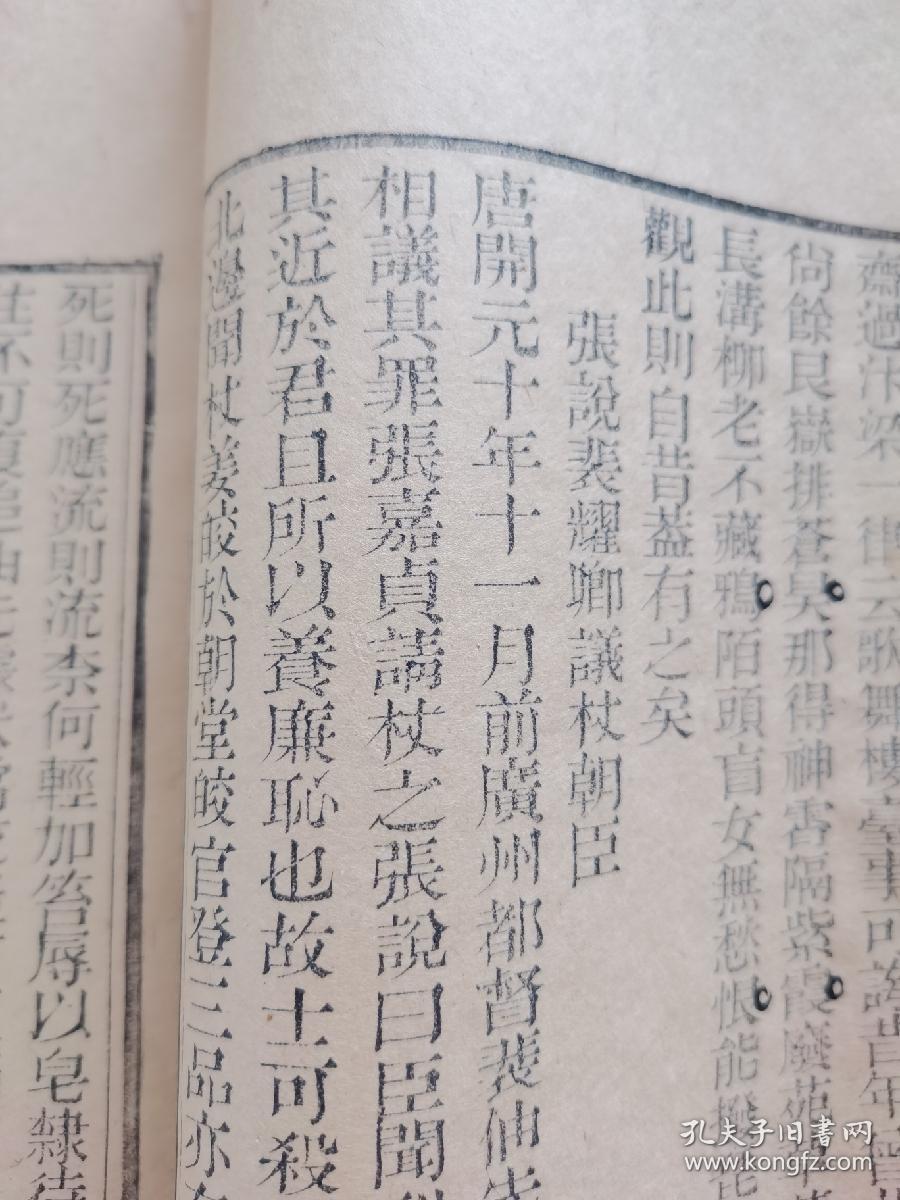 齋過汴梁一律云歌舞樓臺事可誇昔年
尙餘艮嶽排蒼昊那得神霄隔紫霞廢苑草
長溝柳老不藏鴉陌頭盲女無愁恨能撥
觀此則自昔葢有之矣
張說裴耀卿議杖朝臣
唐開元十年十一月前廣州都督裴伷先
相議其罪張嘉貞請杖之張說曰臣聞
其近於君且所以養廉恥也故士可殺
北邊聞杖姜皎於朝堂皎官登三品亦有
死則死應流則流柰何輕加笞辱以皂隸待
往不可復追
孔夫子旧书网
www.kongfz.com